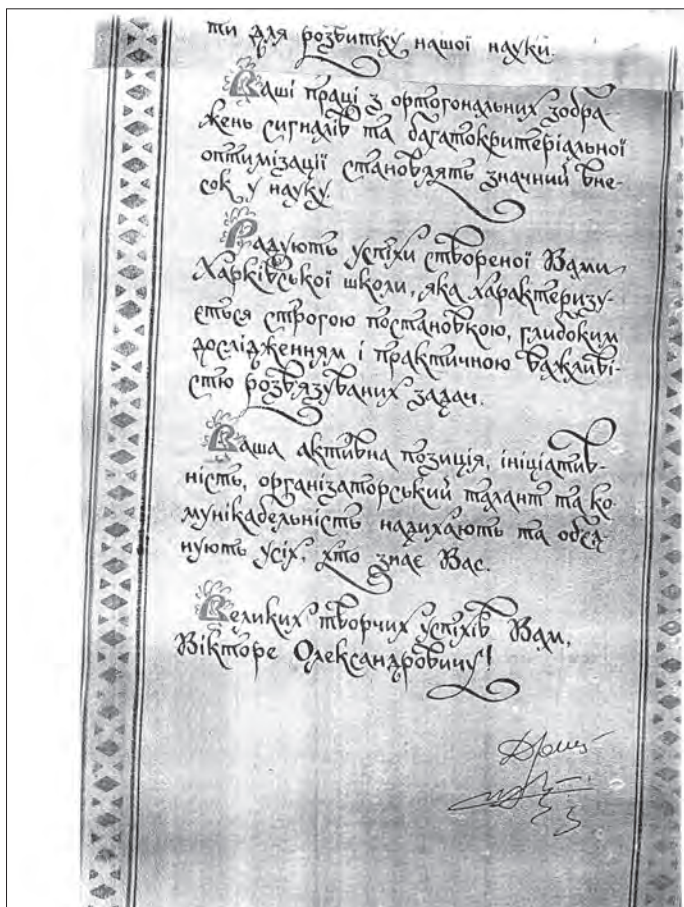 ти для розвитку нашої науки.
Ваші праці з ортогональних зобра-
жень сигналів та багатокритеріальної
оптимізації становлять значний вне-
сок у науку.
Радують успіхи створеної Вами
Харківської школи, яка характеризу-
ється строгою постановкою, глибоким
дослідженням і практичною важливі-
стю розв'язуваних задач.
Ваша активна позиція, ініціатив-
ність, організаторський талант та ко-
мунікабельність надихають та об'єд-
нують усіх, хто знає Вас.
Великих творчих успіхів Вам,
Вікторе Олександровичу!